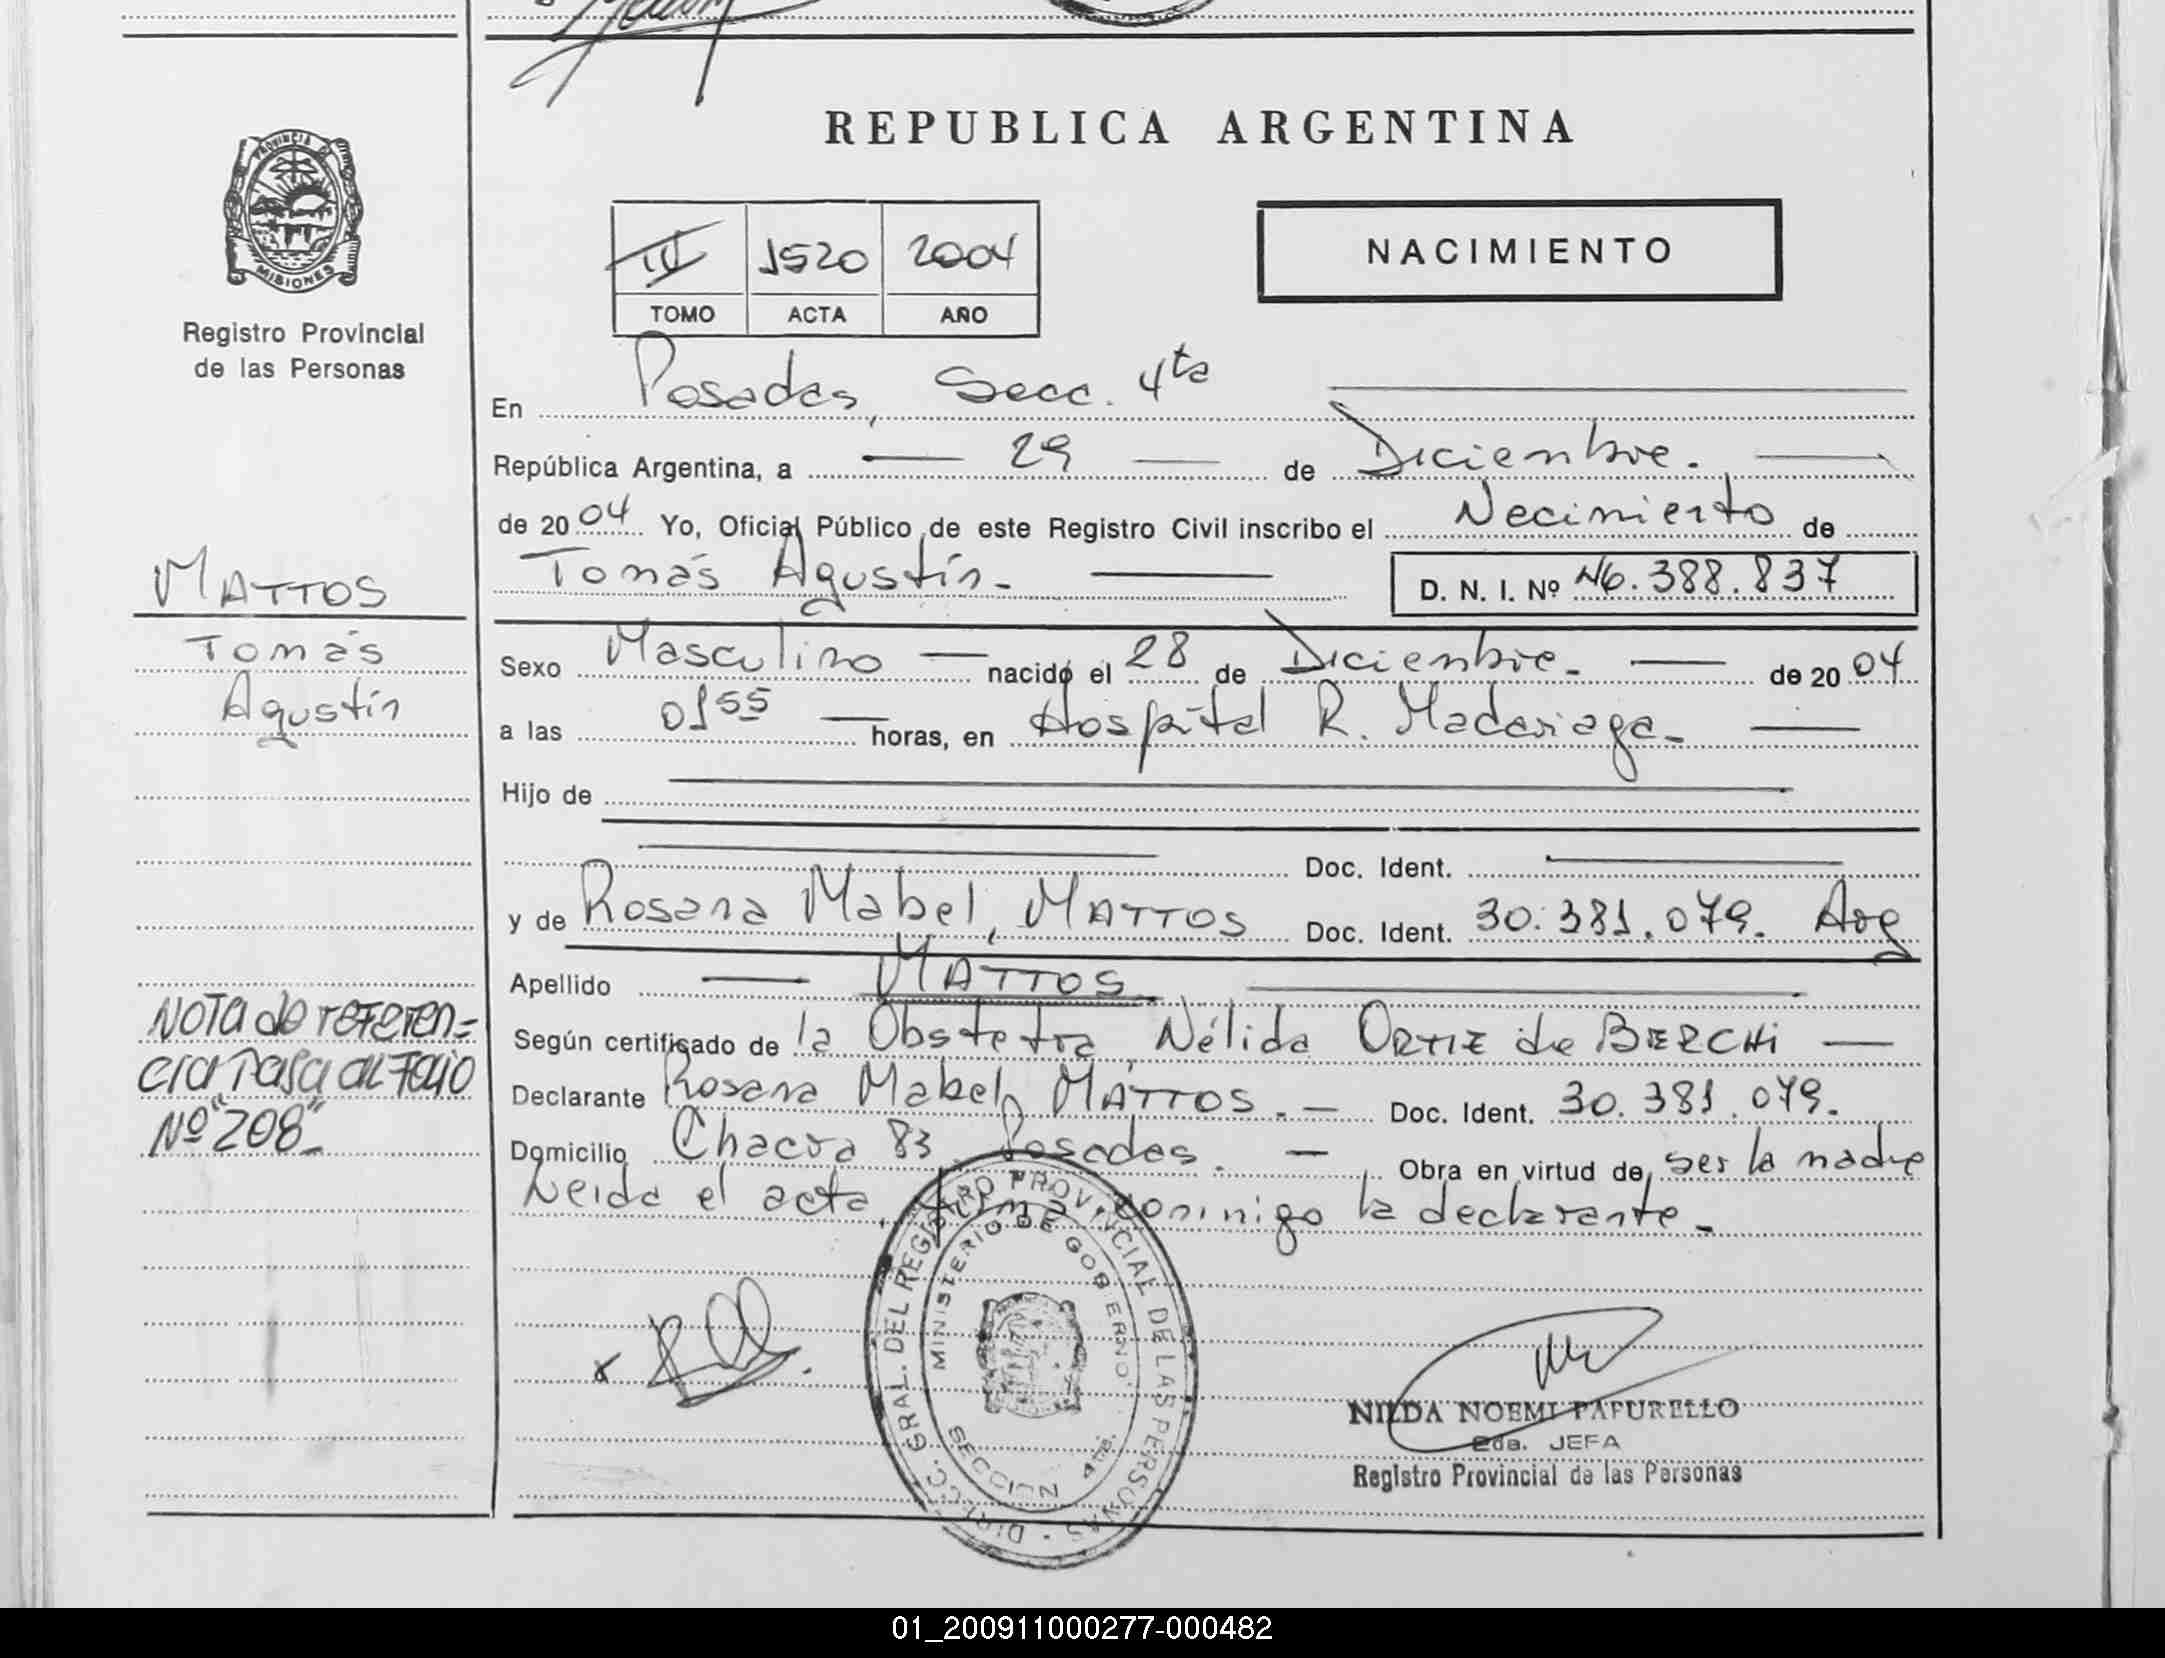 PROVINCIA DE
MISIONES
Registro Provincial
de las Personas
MATTOS
Tomás
Agustín
NOTA de referen=
cia Pasa al Folio
Nº "208"-
REPUBLICA ARGENTINA
IV 1520 2004
TOMO ACTA AÑO
NACIMIENTO
En Posadas, Secc. 4ta
República Argentina, a — 29 — de Diciembre. —
de 2004 Yo, Oficial Público de este Registro Civil inscribo el Nacimiento de
Tomás Agustín. — D. N. I. Nº 46.388.837
Sexo Masculino — nacido el 28 de Diciembre. — de 2004
a las 01 55 — horas, en Hospital R. Madariaga. —
Hijo de
Doc. Ident.
y de Rosana Mabel, MATTOS Doc. Ident. 30.381.079. Arg
Apellido — MATTOS —
Según certificado de la Obstetra, Nélida ORTIZ de BERCHI —
Declarante Rosana Mabel, MATTOS. — Doc. Ident. 30.381.079.
Domicilio Chacra 83 Posadas. — Obra en virtud de, ser la madre
Leida el acta, firma conmigo la declarante.
DIRECC. GRAL. DEL REGISTRO PROVINCIAL DE LAS PERSONAS
MINISTERIO DE GOBIERNO
SECCION 4ta.
NILDA NOEMI PAPURELLO
2da. JEFA
Registro Provincial de las Personas
01_200911000277-000482